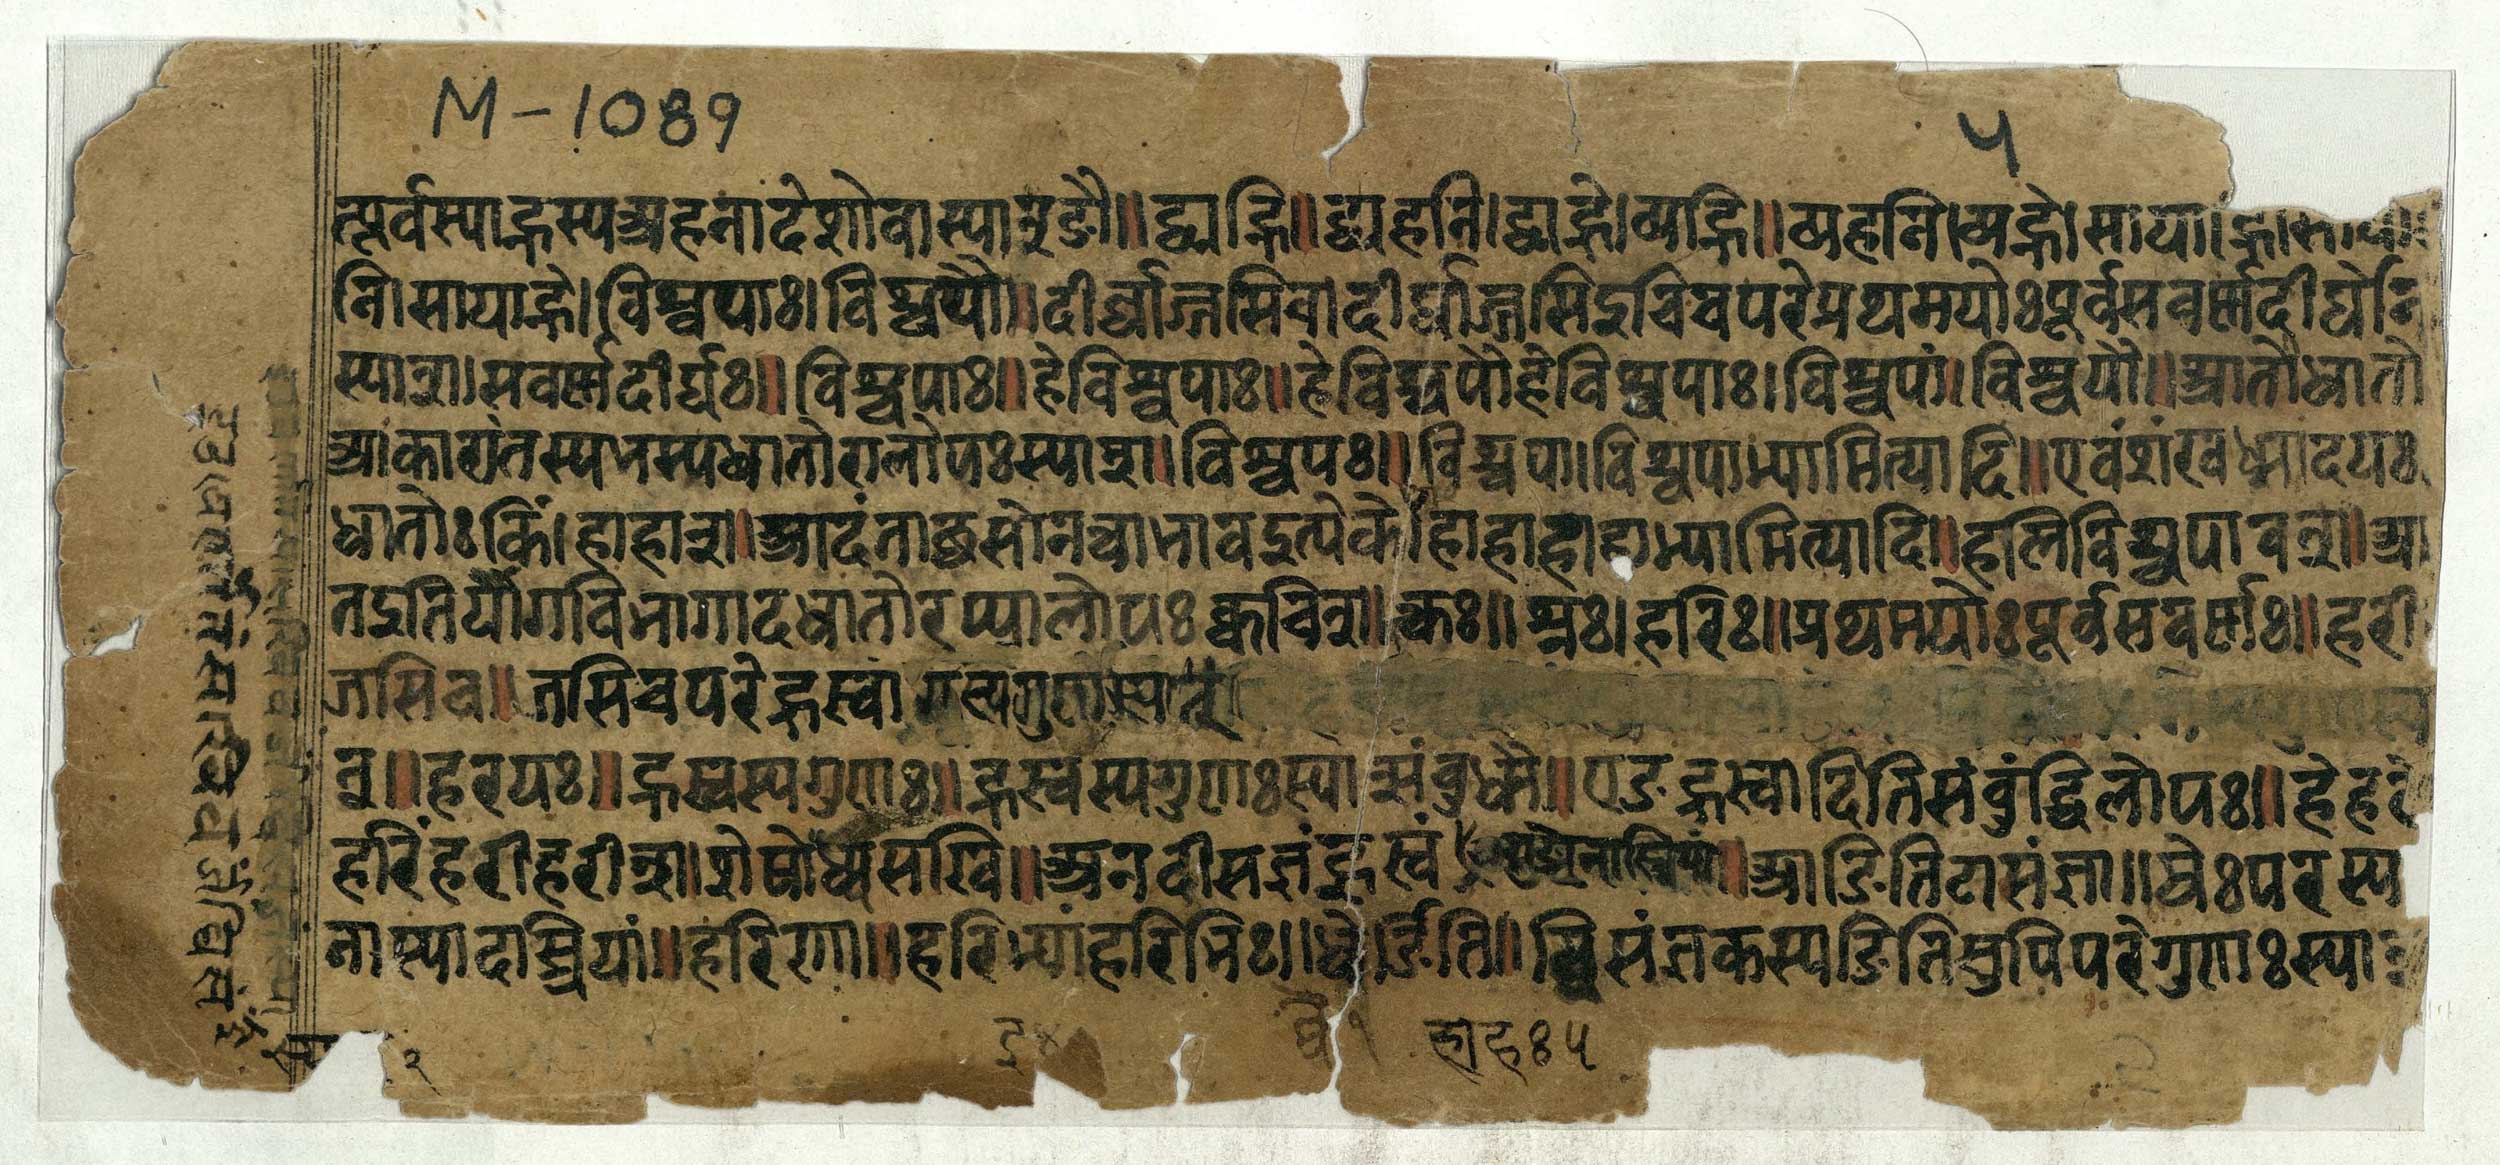 M-1089
५
त्पूर्वस्याह्नस्य अहनादेशो वा स्यान् ङौ॥ द्व्यह्नि॥ द्व्यहनि। द्व्यह्ने। व्यह्नि॥ व्यहनि। व्यह्ने। साया। ह्नि। साया
नि। सायाह्ने। विश्वपाः। विश्वपौ॥ दीर्घाज्जसि च। दीर्घाज्जसि इचि च परे प्रथमयोः पूर्वसवर्णदीर्घो न
स्यात्। सवर्णदीर्घः॥ विश्वपाः॥ हे विश्वपाः॥ हे विश्वपौ हे विश्वपाः। विश्वपां। विश्वपौ॥ आतो धातो
आकारांतस्य भस्य धातोरालोपः स्यात्॥ विश्वपः॥ विश्वपा। विश्वपाभ्यामित्यादि॥ एवं शंखध्मादयः
धातोः किं। हाहान्॥ आदंताच्छसो नत्वाभाव इत्येके। हाहा हाहाभ्यामित्यादि॥ हलि विश्वपावत्॥ आ
त इति योगविभागादधातोरप्यालोपः क्वचित्॥ क्तः॥ श्नः। हरिः॥ प्रथमयोः पूर्वसवर्णः॥ हरी
जसि च॥ जसि च परे ह्रस्वा गस्य गुणः स्यात्
त्॥ हरयः॥ ह्रस्वस्य गुणः॥ ह्रस्वस्य गुणः स्यात्संबुध्दौ॥ एङ् ह्रस्वादिति संबुद्धिलोपः॥ हे हरे
हरिं हरी हरीन्॥ शेषो घ्यसखि॥ अनदीसंज्ञं ह्रस्वं आङो नास्त्रियां॥ आङिति टासंज्ञा॥ घेः परस्य
ना स्यादस्त्रियां॥ हरिणा॥ हरिभ्यां हरिभिः॥ घेर्ङिति॥ घिसंज्ञकस्य ङिति सुपि परे गुणः स्यात्
हाहः ५